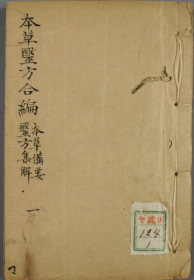 本草醫方合編
本草備要
醫方集解
一
134
1